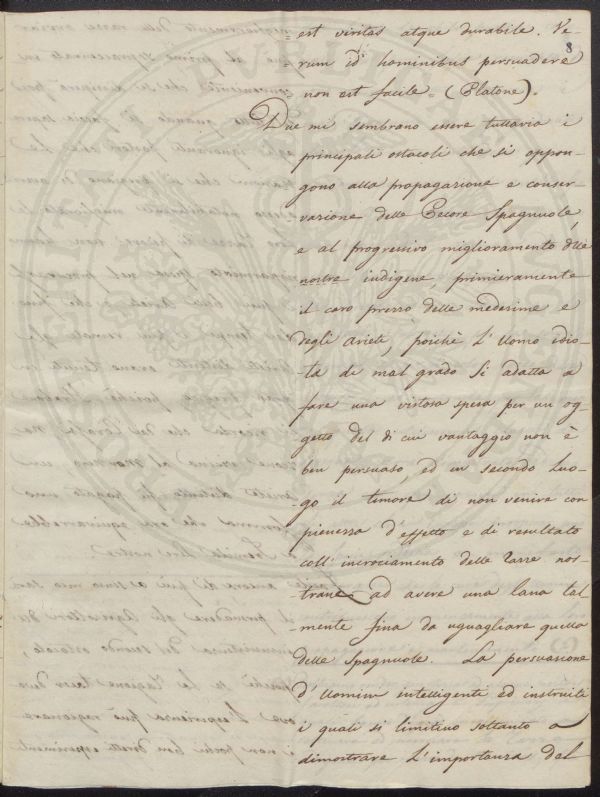 8
= est viritas atque durabile. Ve-
= rum id hominibus persuadere
non est facile = (Platone) =
Due mi sembrano essere tuttavia i
principali ostacoli che si oppon-
gono alla propagazione e conser-
-vazione delle Pecore Spagnuole,
e al progressivo miglioramento d'lle
nostre indigene, primieramente
il caro prezzo delle medesime e
degli arieti, poichè l'Uomo idio-
-ta di mal grado si adatta a
fare una vistosa spesa per un og-
getto del di cui vantaggio non è
ben persuaso, ed in secondo luo-
-go il timore di non venire con
pienezza d'effetto e di resultato
coll'incrociamento delle razze nos-
-trane ad avere una lana tal
-mente fina da uguagliare quella
delle Spagnuole. La persuasione
d'Uomini intelligenti ed instruiti
i quali si limitino soltanto a
dimostrare l'importanza del